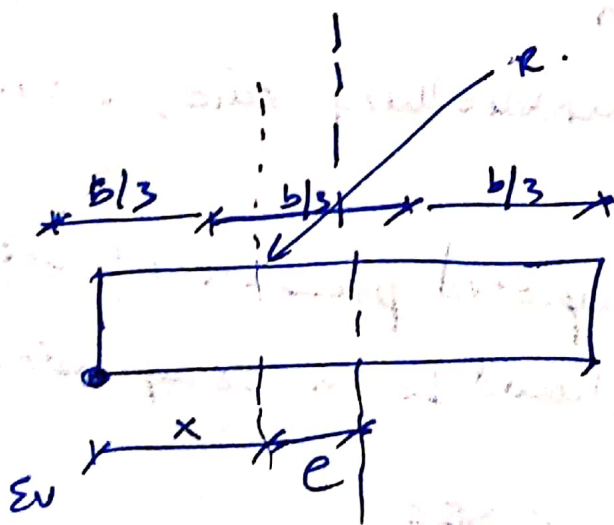 R.
b/3 b/3 b/3
x
e
Σv